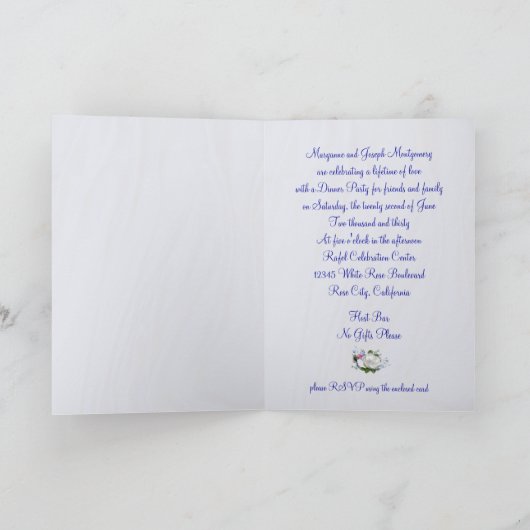 Maryanne and Joseph Montgomery
are celebrating a lifetime of love
with a Dinner Party for friends and family
on Saturday, the twenty second of June
Two thousand and thirty
At five o'clock in the afternoon
Rafel Celebration Center
12345 White Rose Boulevard
Rose City, California
Host Bar
No Gifts Please
please RSVP using the enclosed card